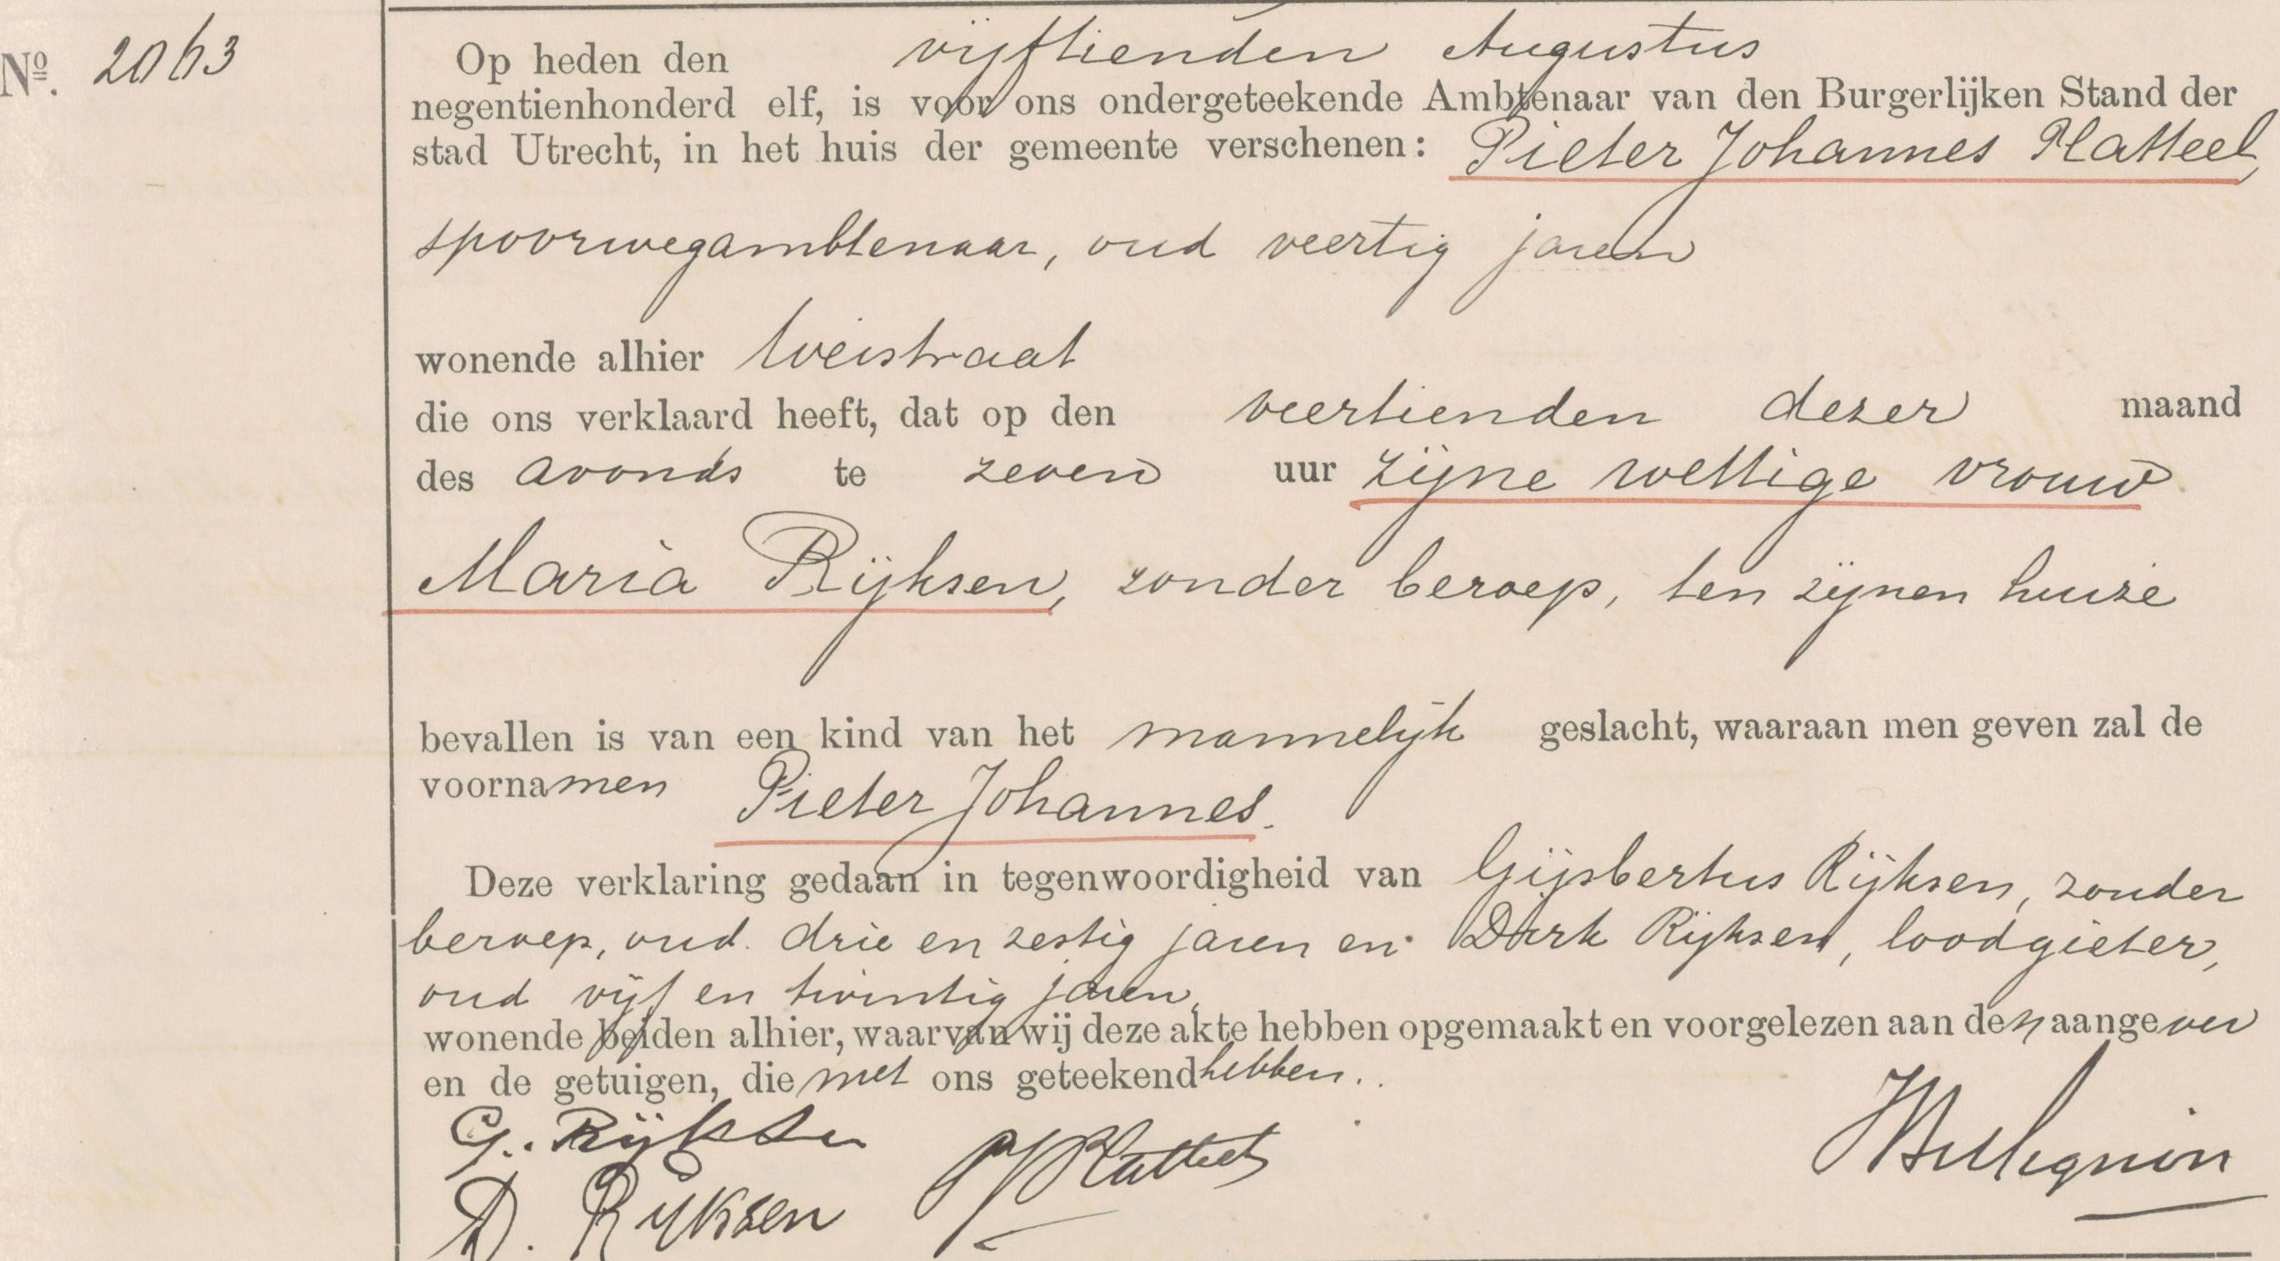 No. 2063
Op heden den vijftienden Augustus
negentienhonderd elf, is voor ons ondergeteekende Ambtenaar van den Burgerlijken Stand der
stad Utrecht, in het huis der gemeente verschenen: Pieter Johannes Platteel,
spoorwegambtenaar, oud veertig jaren
wonende alhier Weistraat
die ons verklaard heeft, dat op den veertienden dezer maand
des avonds te zeven uur zijne wettige vrouw
Maria Rijksen, zonder beroep, ten zijnen huize
bevallen is van een kind van het mannelijk geslacht, waaraan men geven zal de
voornamen Pieter Johannes.
Deze verklaring gedaan in tegenwoordigheid van Gijsbertus Rijksen, zonder
beroep, oud drie en zestig jaren en Dirk Rijksen, loodgieter,
oud vijf en twintig jaren,
wonende beiden alhier, waarvan wij deze akte hebben opgemaakt en voorgelezen aan den aangever
en de getuigen, die met ons geteekend hebben.
G. Rijksen PJ Platteel
D. Rijksen